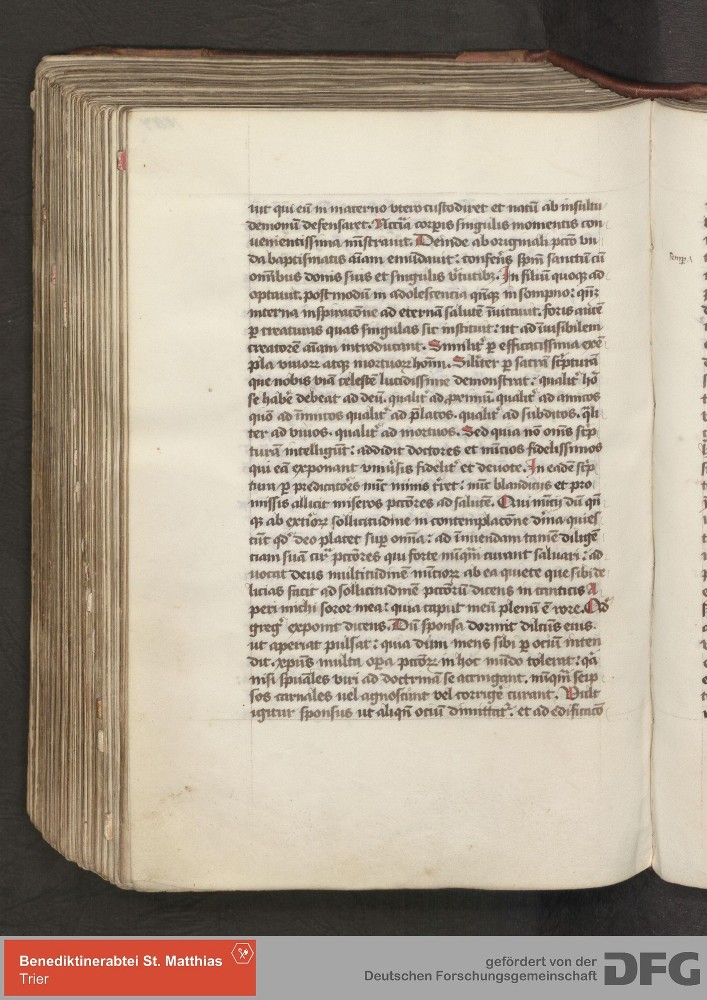 uit qui eū in materno vtero custodiret et natū ab insultu
demonū defensaret. Nccīa corpīs singulis momentis con
uenientissima mīstrauit. Deinde ab originali pctō vn
da baptismatis aīam emūdauit: conferēs spīm sanctū cū
omībus donis suis et singulis v̄tutibꝫ. In filiū quoqꝫ ad
optauit. postmodū in adolescencia qn̄qꝫ in sompno: qn̄qꝫ
interna inspiracōne ad eternā salutē īuitauit. foris autē
ꝑ creaturas quas singulas sic instituit: ut ad īuisibilem
creatorē aīam introducant. Similiṫ ꝑ efficacissima exē
pla viuoꝝ atqꝫ mortuoꝝ hoīm. Siliter ꝑ sacrā scͥpturā
que nobis viā celestē lucidissime demonstrat: qualiṫ hō
se habē debeat ad deū. qualiṫ ad ꝓximū. qualiṫ ad amicos
quō ad īmicos qualiṫ ad p̄latos. qualiṫ ad subditos. qͣli
ter ad viuos. qualiṫ ad mortuos. Sed quia nō om̄s scͥp
turā intelligūt: addidit doctores et nūcios fidelissimos
qui eā exponant vniūsis fideliṫ et deuote. In eadē scͥp
tura ꝑ predicatōes nūc minis t̄ret: nūc blandiciis et pro
missis allicit miseros pctōres ad salutē. Qui nūcii dū qn̄
qꝫ ab exͥioꝝ sollicitudine in contemplacōne dīna quies
cūt qd̓ deo placet suꝑ omīa: ad īuuendam tamē diligē
ciam suā circͣ pctōres qui forte nūqͣm curant saluari: ad
uocat deus multitudinē nūcioꝝ ab ea quiete que sibi de
licias facit ad sollicitudinē pctōrū dicens in canticis A
peri michi soror mea: quia caput meū plenū ē rore. Qd̓
greg̓ exponit dicens. Dū sponsa dormit dilcūs eius.
ut aperiat pulsat: quia dum mens sibi ꝑ ociū inten
dit. xpūs multa opͣa pctōꝝ in hoc mūdo tolerat: qͣa
nisi spūales viri ad doctrinā se accingant. nūqͣm seip
sos carnales uel agnoscunt vel corrigē curant. Vult
igitur sponsus ut aliqn̄ ociū dimittat̄. et ad edificacō
Benediktinerabtei St. Matthias
Trier
gefördert von der
Deutschen Forschungsgemeinschaft
DFG